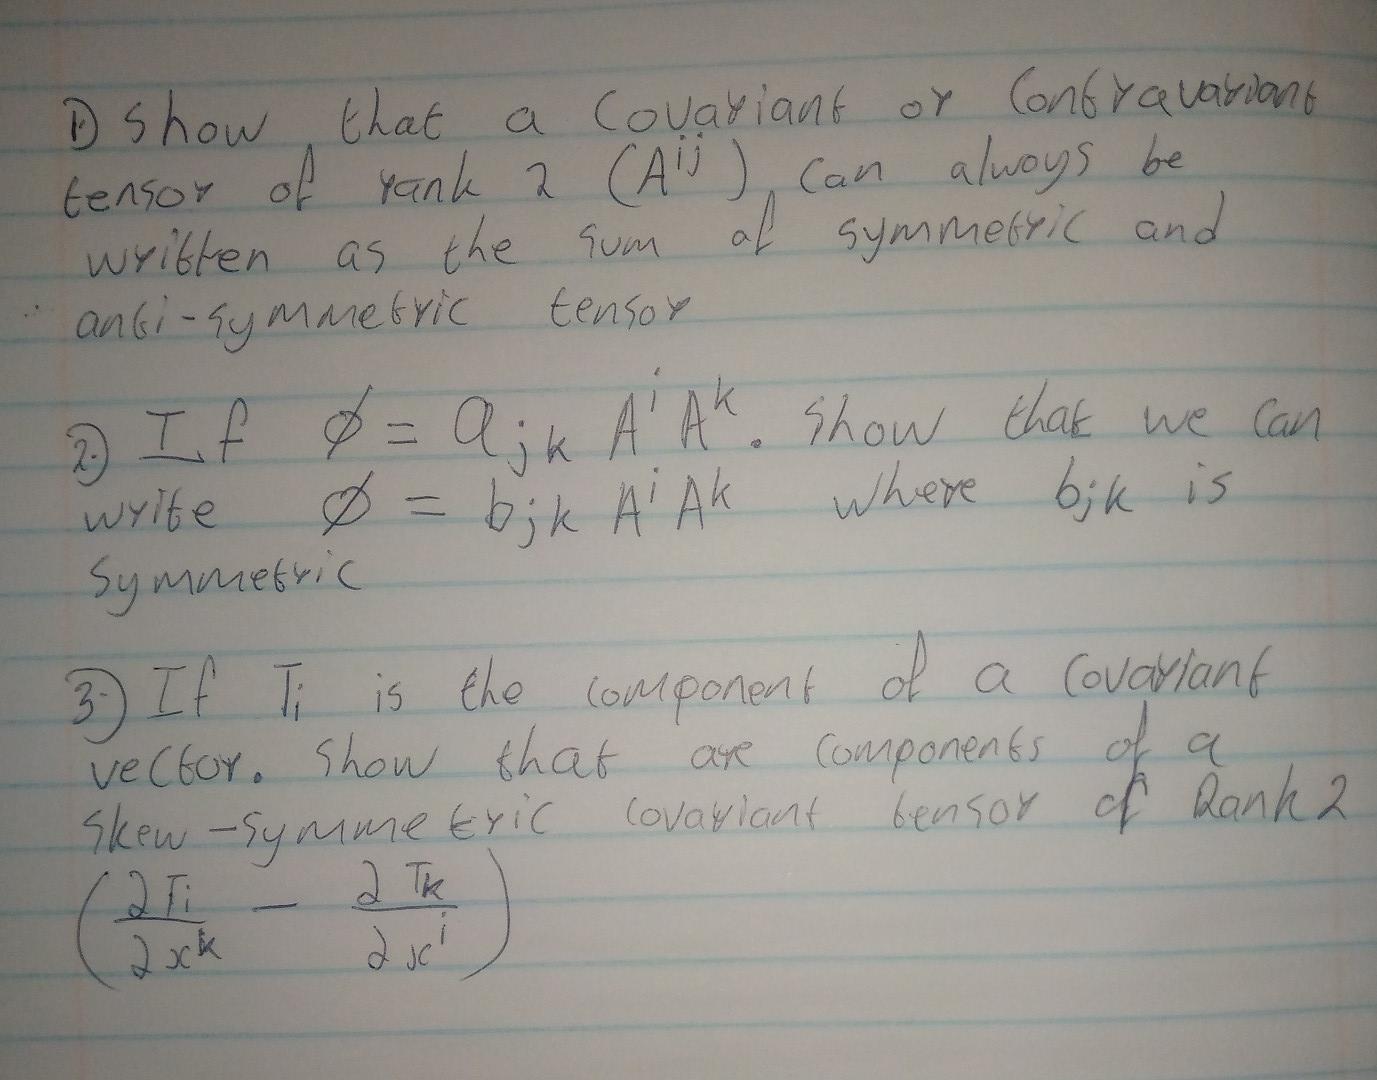 1.) Show that a Covariant or Contravariant
tensor of rank 2 (Aⁱʲ) can always be
written as the sum of symmetric and
anti-symmetric tensor
2.) If ø = a_jk Aʲ Aᵏ. Show that we can
write ø = b_jk Aʲ Aᵏ where b_jk is
symmetric
3.) If Tᵢ is the component of a covariant
vector. Show that are components of a
skew-symmetric covariant tensor of Rank 2
(∂Tᵢ/∂xᵏ − ∂Tₖ/∂xⁱ)